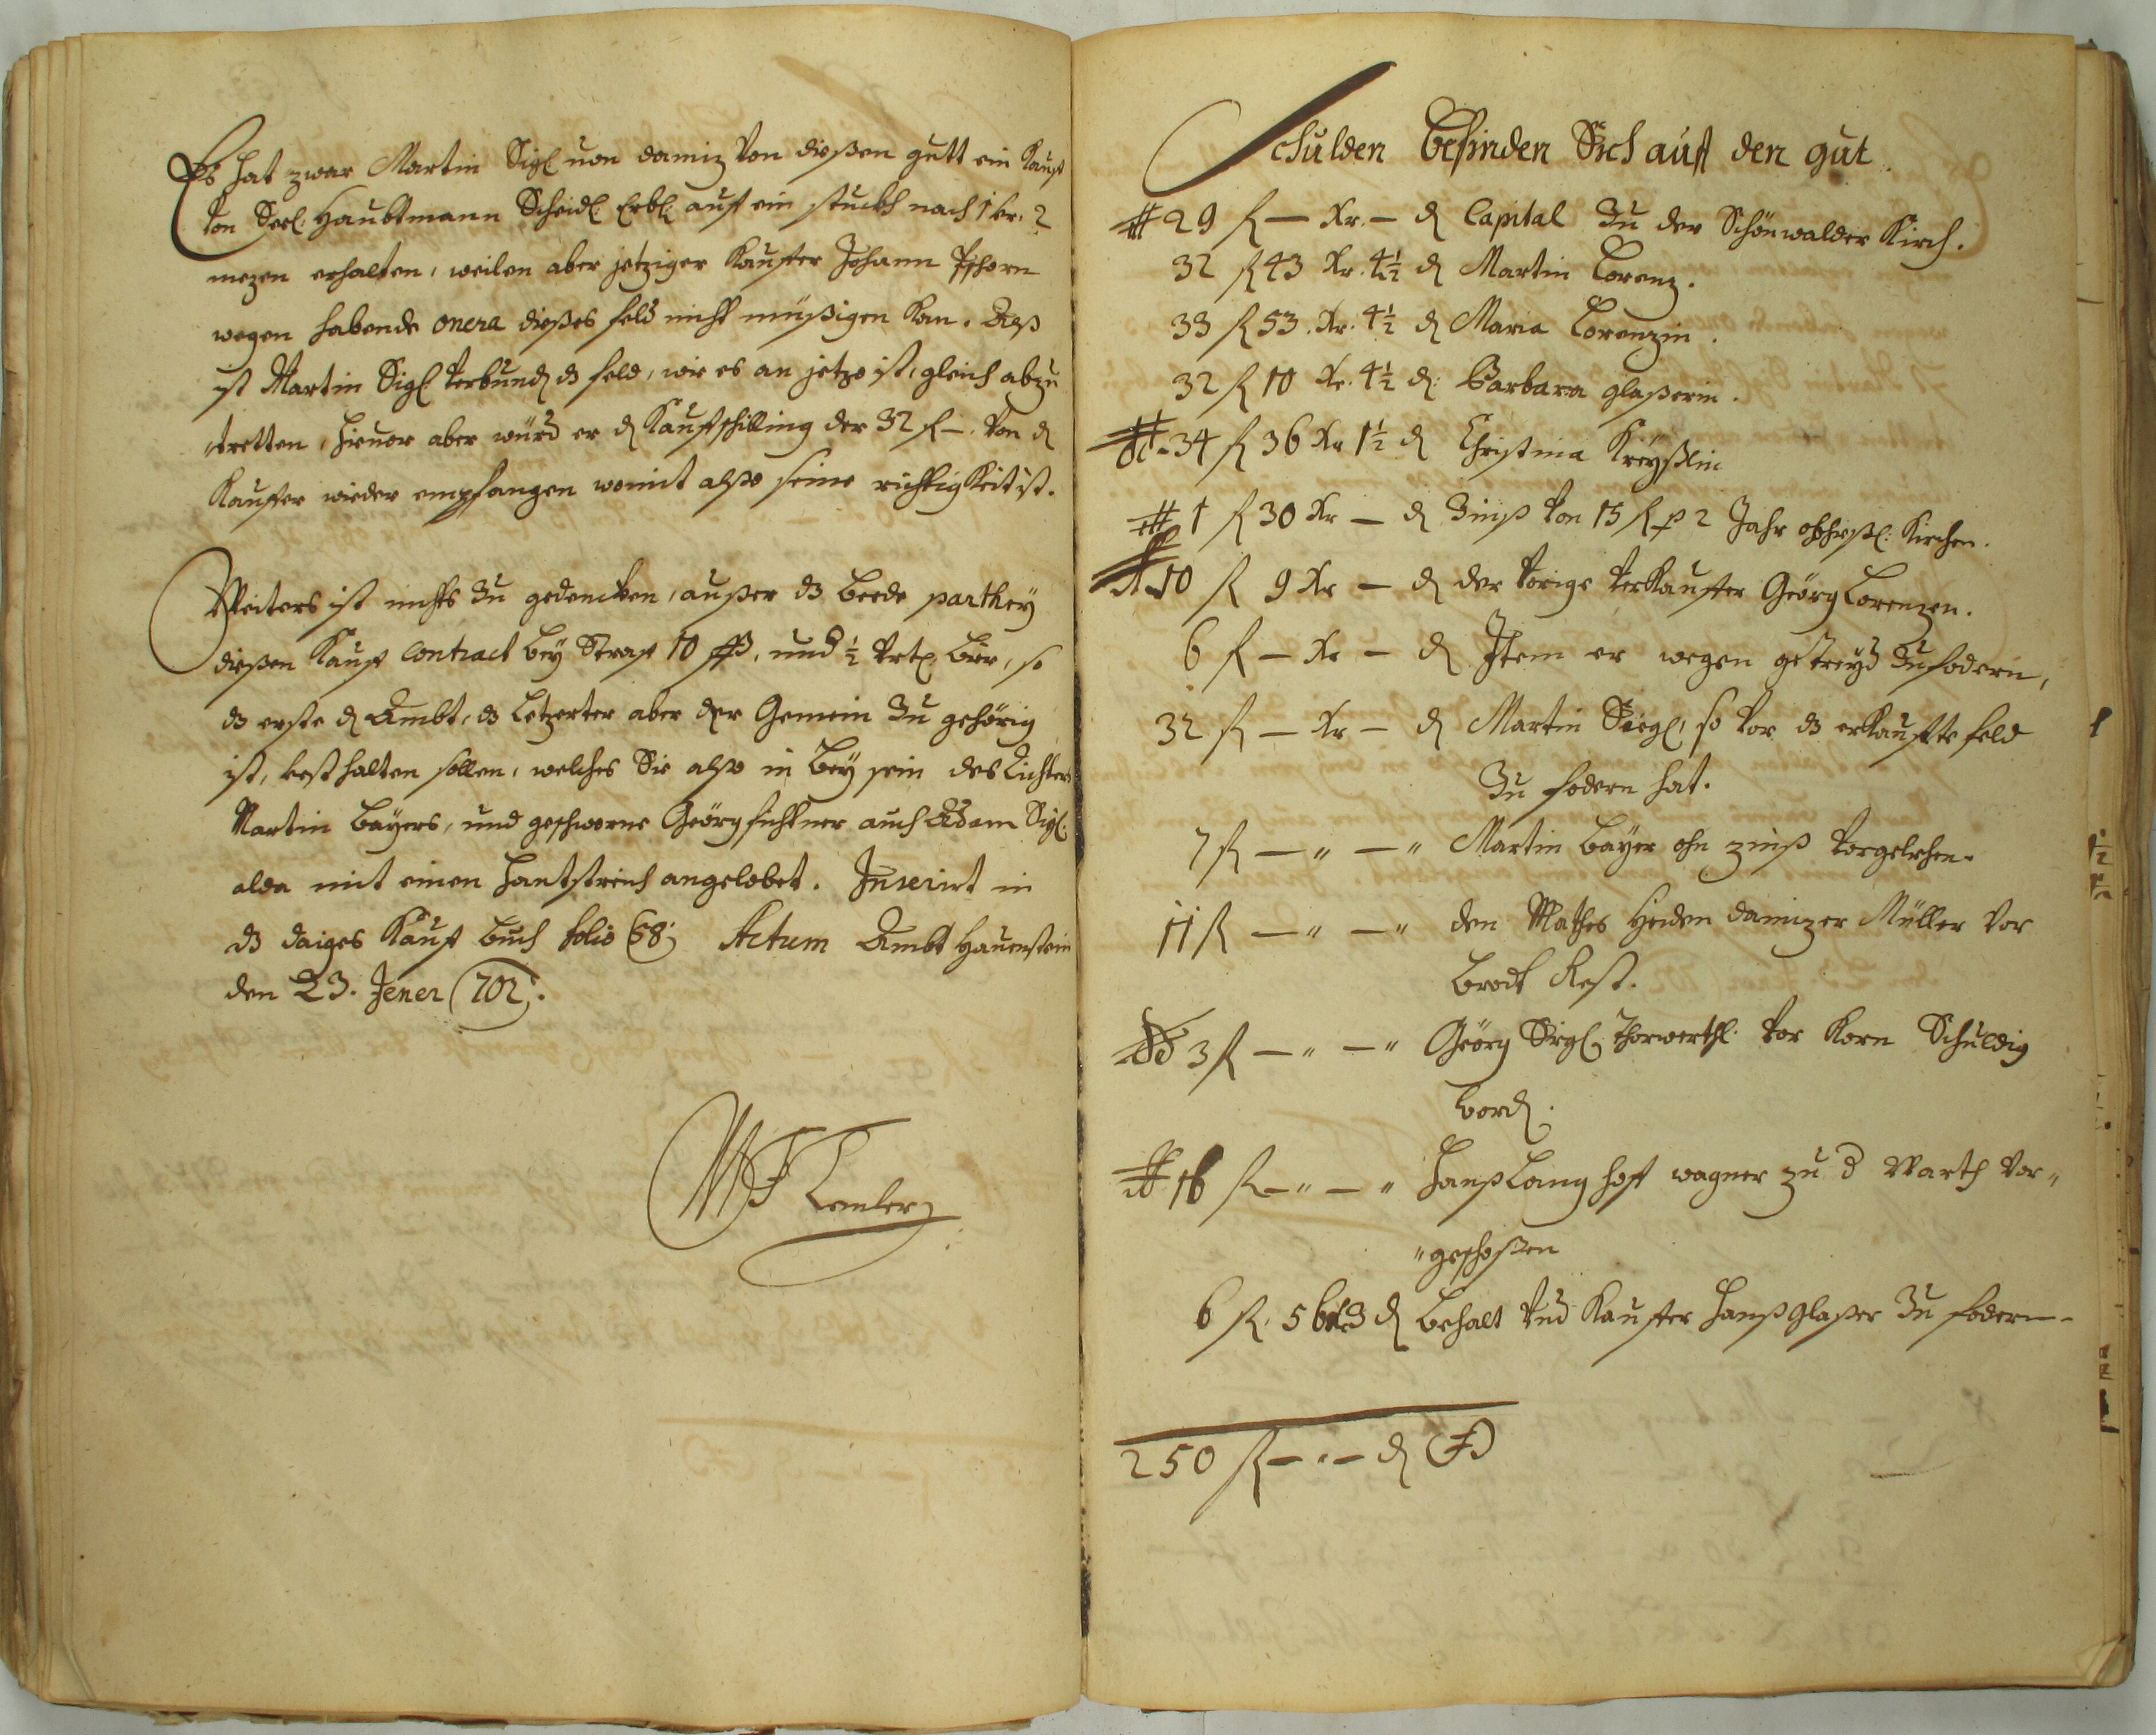 Es hat zwar Martin Sigl von damiz von dießen gutt ein Kauf
von Seel: Haubtmann Scheidl: Erbl: auf ein stuckh nach 1 kr: 2
mezen erhalten, weilen aber jetziger Kauffer Johann
wegen habende onera dießes feld nicht müßigen kan. Alß
ist Martin Sigl verbund dz feld, wie es an jetzo ist, gleich abzu
tretten, hievor aber würd er d Kaufschilling der 32 f –. von d
Kauffer wieder empfangen womit alßo seine richtigkeit ist.
Weiters ist nichts zu gedencken, außer dz beede parthey
dießen Kauf contract bey Straf 10 ßß, und ½ Vrtl: bier, so
dz erste d Ambt, dz Letzerter aber der Gemein zu gehörig
ist, vest halten sollen, welches Sie alßo in bey sein des Richters
Martin Bayers, und geschworne Geörg fichtner auch Adam Sigl:
alda mit einen handtstreich angelobet. Inserirt in
dz daiges Kauf buch folio 68; Actum Ambt Hauenstein
den 23. Jener 702.
Schulden befinden Sich auf den gut
29 f – Xr. – d Capital Zu der Schönwalder Kirch.
32 f 43 Xr. 4½ d Martin Lorenz.
33 f 53. Xr. 4½ d Maria Lorenzin.
32 f 10 Xr. 4½ d: Barbara glaßerin.
34 f 36 Xr 1½ d Christina Kreyßlin
1 f 30 Xr – d Zinß von 15 f p 2 Jahr Kirchen.
10 f 9 Xr – d der vorige verkauffer Geörg Lorenzen.
6 f – Xr – d Item er wegen getreyd Zu fodern,
32 f – Xr – d Martin Siegl, so vor dz erkauffte feld
Zu fodern hat.
7 f – „ – „ Martin Bayer ohn zinß vorgelehen.
11 f – „ – „ den Mathes Heiden damizer Müller vor
Brodt Rest.
3 f – „ – „ Geörg Siegl vor Korn Schuldig
word.
16 f – „ – „ Hanß Lang hoff wagner zu d Warth vor„
„geschoßen
6 f. 56 Xr 3 d behalt Kauffer Hanß glaßer Zu fodern
250 f – „ – d